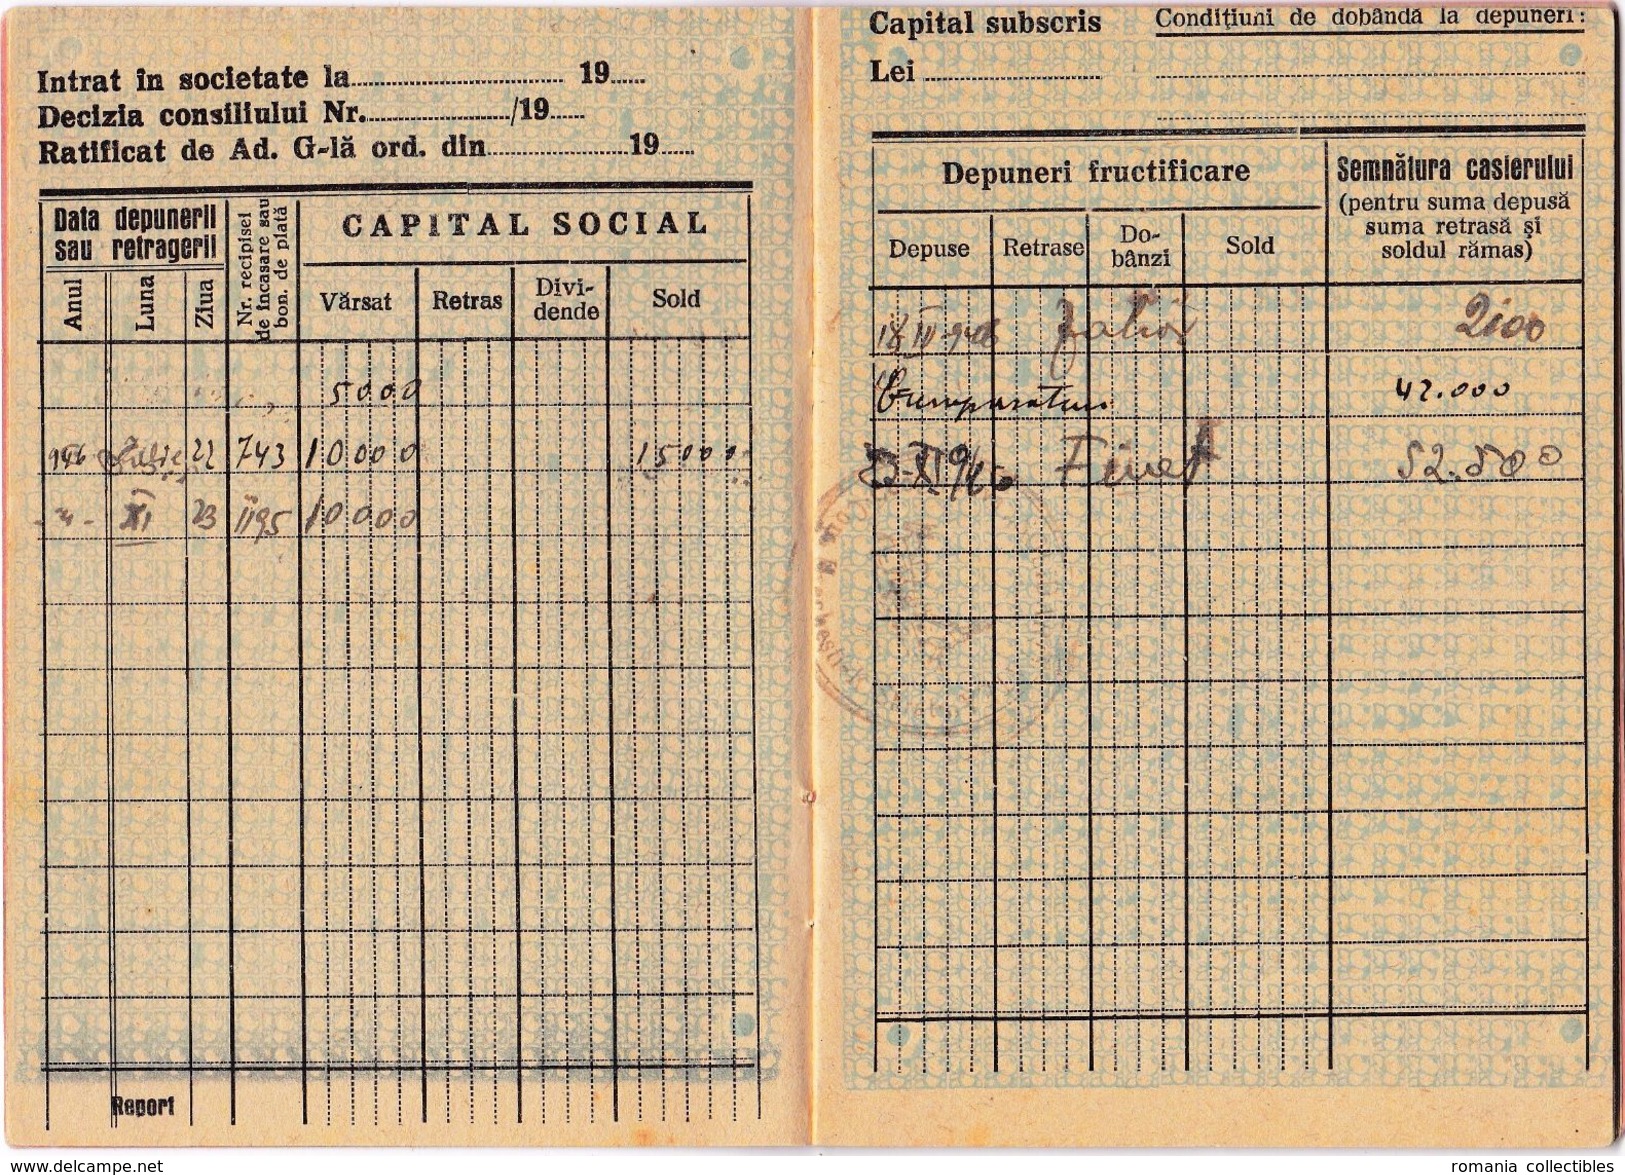 Intrat în societate la 19
Decizia consiliului Nr. /19
Ratificat de Ad. G-lă ord. din 19
Data depunerii
sau retragerii
Anul
Luna
Ziua
Nr. recipisei
de încasare sau
bon. de plată
CAPITAL SOCIAL
Vărsat
Retras
Divi-
dende
Sold
5000
946 Iulie 22 743 10000 15000
XI 23 1195 10000
Report
Capital subscris
Lei
Condițiuni de dobândă la depuneri:
Depuneri fructificare
Depuse
Retrase
Do-
bânzi
Sold
Semnătura casierului
(pentru suma depusă
suma retrasă și
soldul rămas)
2100
42.000
52.500
www.delcampe.net
romania collectibles